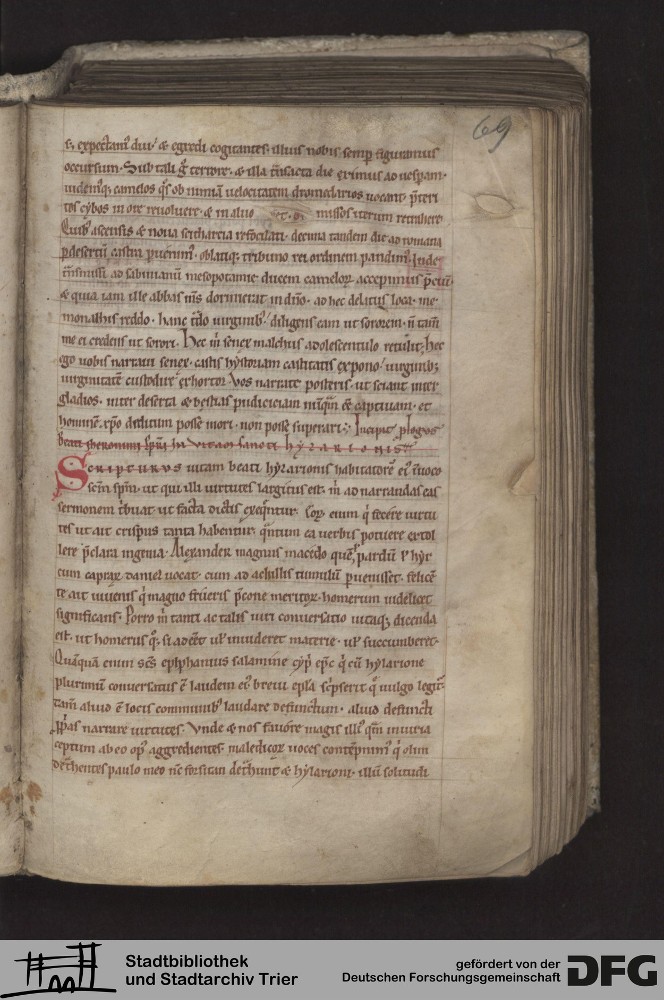 69
s; expectam' diu / & egredi cogitantes. illius nobis semp figuramus
occursum. Sub tali g terrore. & illa transacta die eximus ad uesperam.
uidemusq; camelos qs ob nimiam uelocitatem dromedarios uocant. pteri
tos cybos in ore reuoluere. & in aluo missos iterum retrahere
Quib' ascensis & noua sitharcia refocilati. decima tandem die ad romana
p desertum castra puenim'. oblatiq; tribuno rei ordinem pandim'. Inde
tnsmissi ad sabinianū mesopotamie ducem camelor accepimus pciū.
& quia iam ille abbas ms dormierat in dno. ad hec delatus loca. me
monachis reddo. hanc trado uirginib'. diligens eam ut sororem. n tam
me ei credens ut sorori. Hec m senex malchus adolescentulo retulit. hec
ego uobis narraui senex. castis hystoriam castitatis expono / uirginib;
uirginitatem custodire exhortor. Vos narrate posteris. ut sciant inter
gladios. inter deserta & bestias pudiciciam nuqm ee captiuam. et
hominē xpo deditum posse mori. non posse superari. Incipit plogus
beati iheronimi spri in uitam sancti hylarionis
Scripturus uitam beati hylarionis habitatorē ei' inuoco
scm spm. ut qui illi uirtutes largitus est. m ad narrandas eas
sermonem tribuat ut facta dictis exequntur. Eor eim q fecere uirtu
tes ut ait crispus tanta habentur. quntum ea uerbis potuere extol
lere pclara ingenia. Alexander magnus macedo que pardum ul hyr
cum caprar daniel uocat. cum ad achillis tumulū puenisset. felicē
te ait iuuenis q magno frueris pcone meritor. homerum uidelicet
significans. Porro m tanti ac talis uiri conuersatio uitaq; dicenda
est. ut homerus q; si adeet ul inuideret materie. ul succumberet.
Quāquā enim scs epiphanius salamine cypi epc q cū hylarione
plurimū conuersatus e laudem ei' breui epla scpserit q uulgo legit
tam aliud e locis communib' laudare defunctum. aliud defuncti
pprias narrare uirtutes. Vnde & nos fauore magis illi' qm iniuria
ceptum ab eo op' aggredientes. maledicor uoces contēpnim' q olim
detrahentes paulo meo nc forsitan detrahunt & hylarioni. illū solitudi
Stadtbibliothek
und Stadtarchiv Trier
gefördert von der
Deutschen Forschungsgemeinschaft
DFG